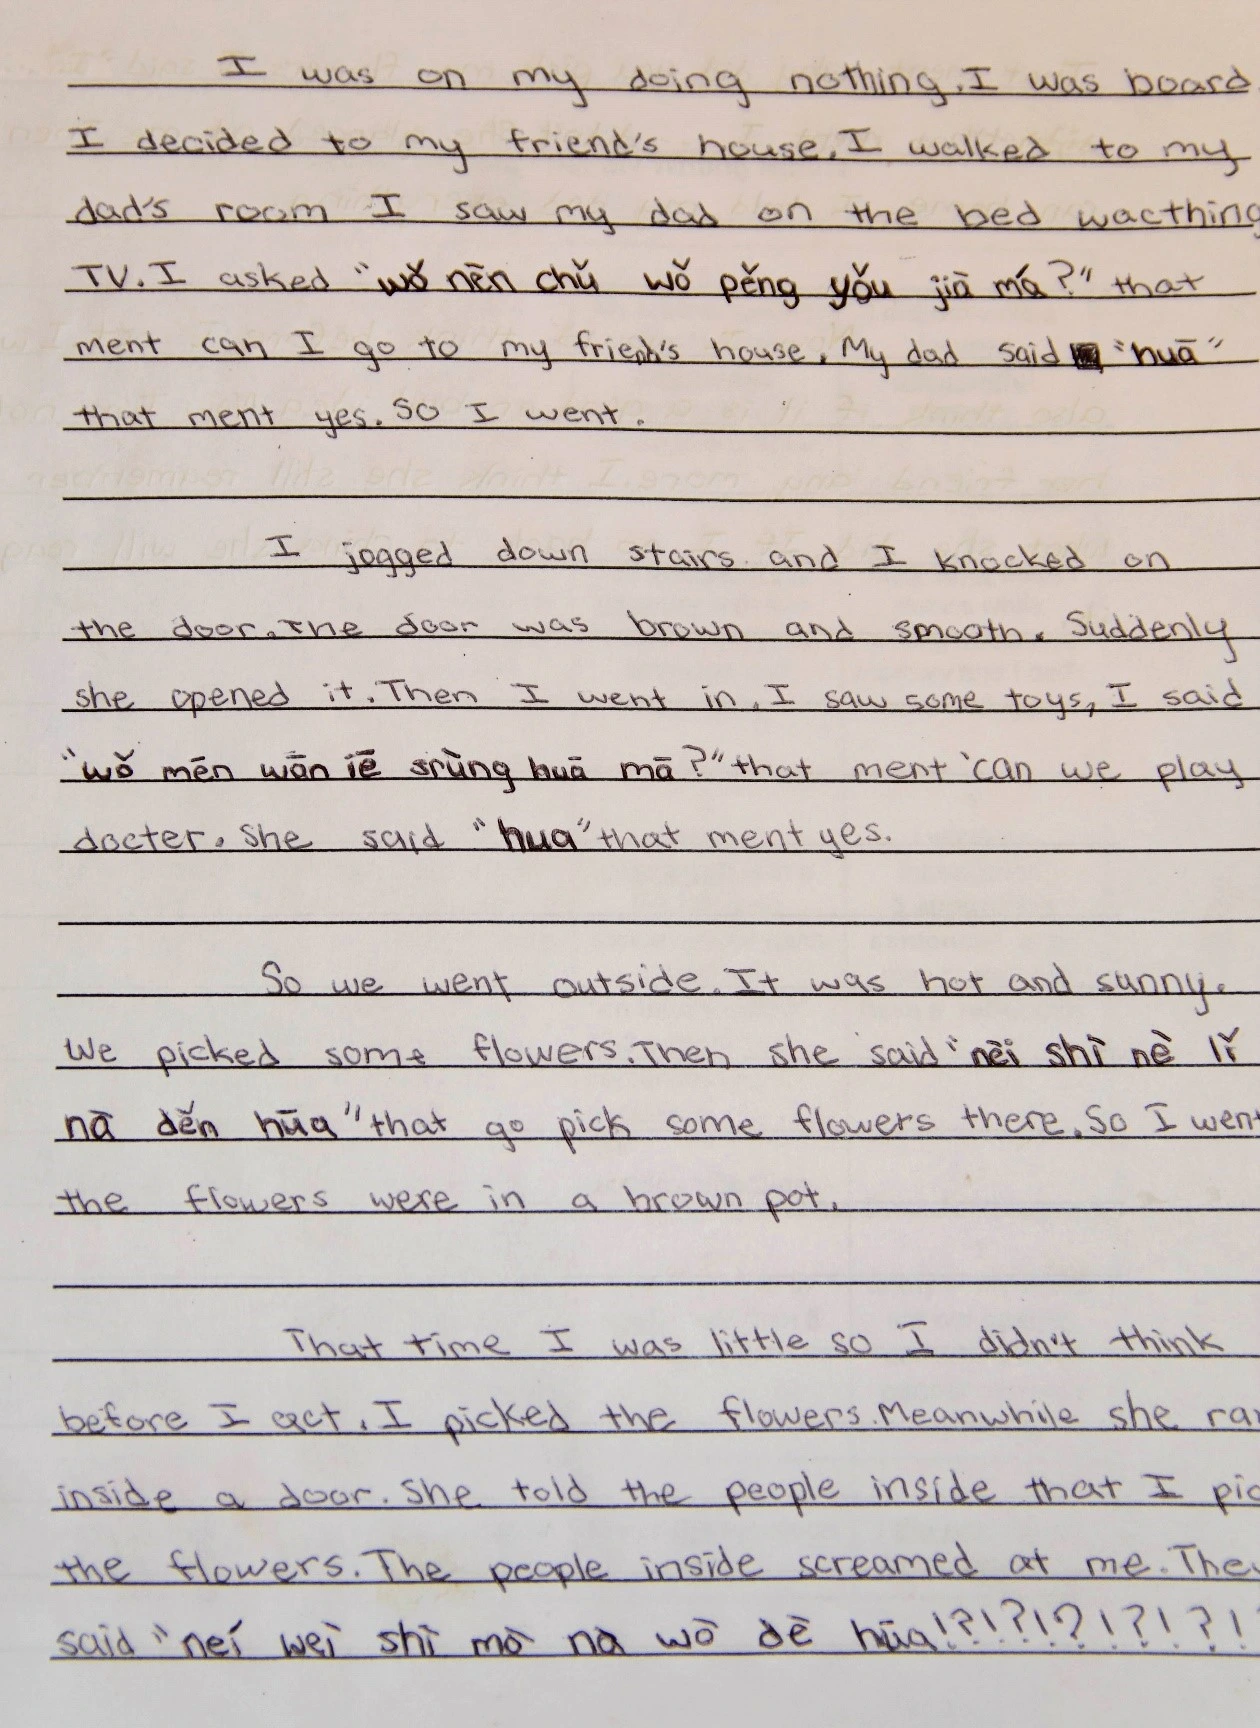 I was on my doing nothing. I was board.
I decided to my friend's house. I walked to my
dad's room I saw my dad on the bed wacthing
TV. I asked "wǒ nēn chǔ wǒ pěng yǒu jiā má?" that
ment can I go to my friend's house. My dad said "huā"
that ment yes. So I went.
I jogged down stairs and I knocked on
the door. The door was brown and smooth. Suddenly
she opened it. Then I went in. I saw some toys, I said
"wǒ mēn wān iē srùng huā mā?" that ment 'can we play
docter. She said "hua" that ment yes.
So we went outside. It was hot and sunny.
We picked some flowers. Then she said "nèi shì nè lǐ
nà děn hūa" that go pick some flowers there. So I went
the flowers were in a brown pot.
That time I was little so I didn't think
before I act. I picked the flowers. Meanwhile she ran
inside a door. She told the people inside that I pic
the flowers. The people inside screamed at me. They
said "neí weì shì mò nà wò dè hūa!?!?!?!?!?!